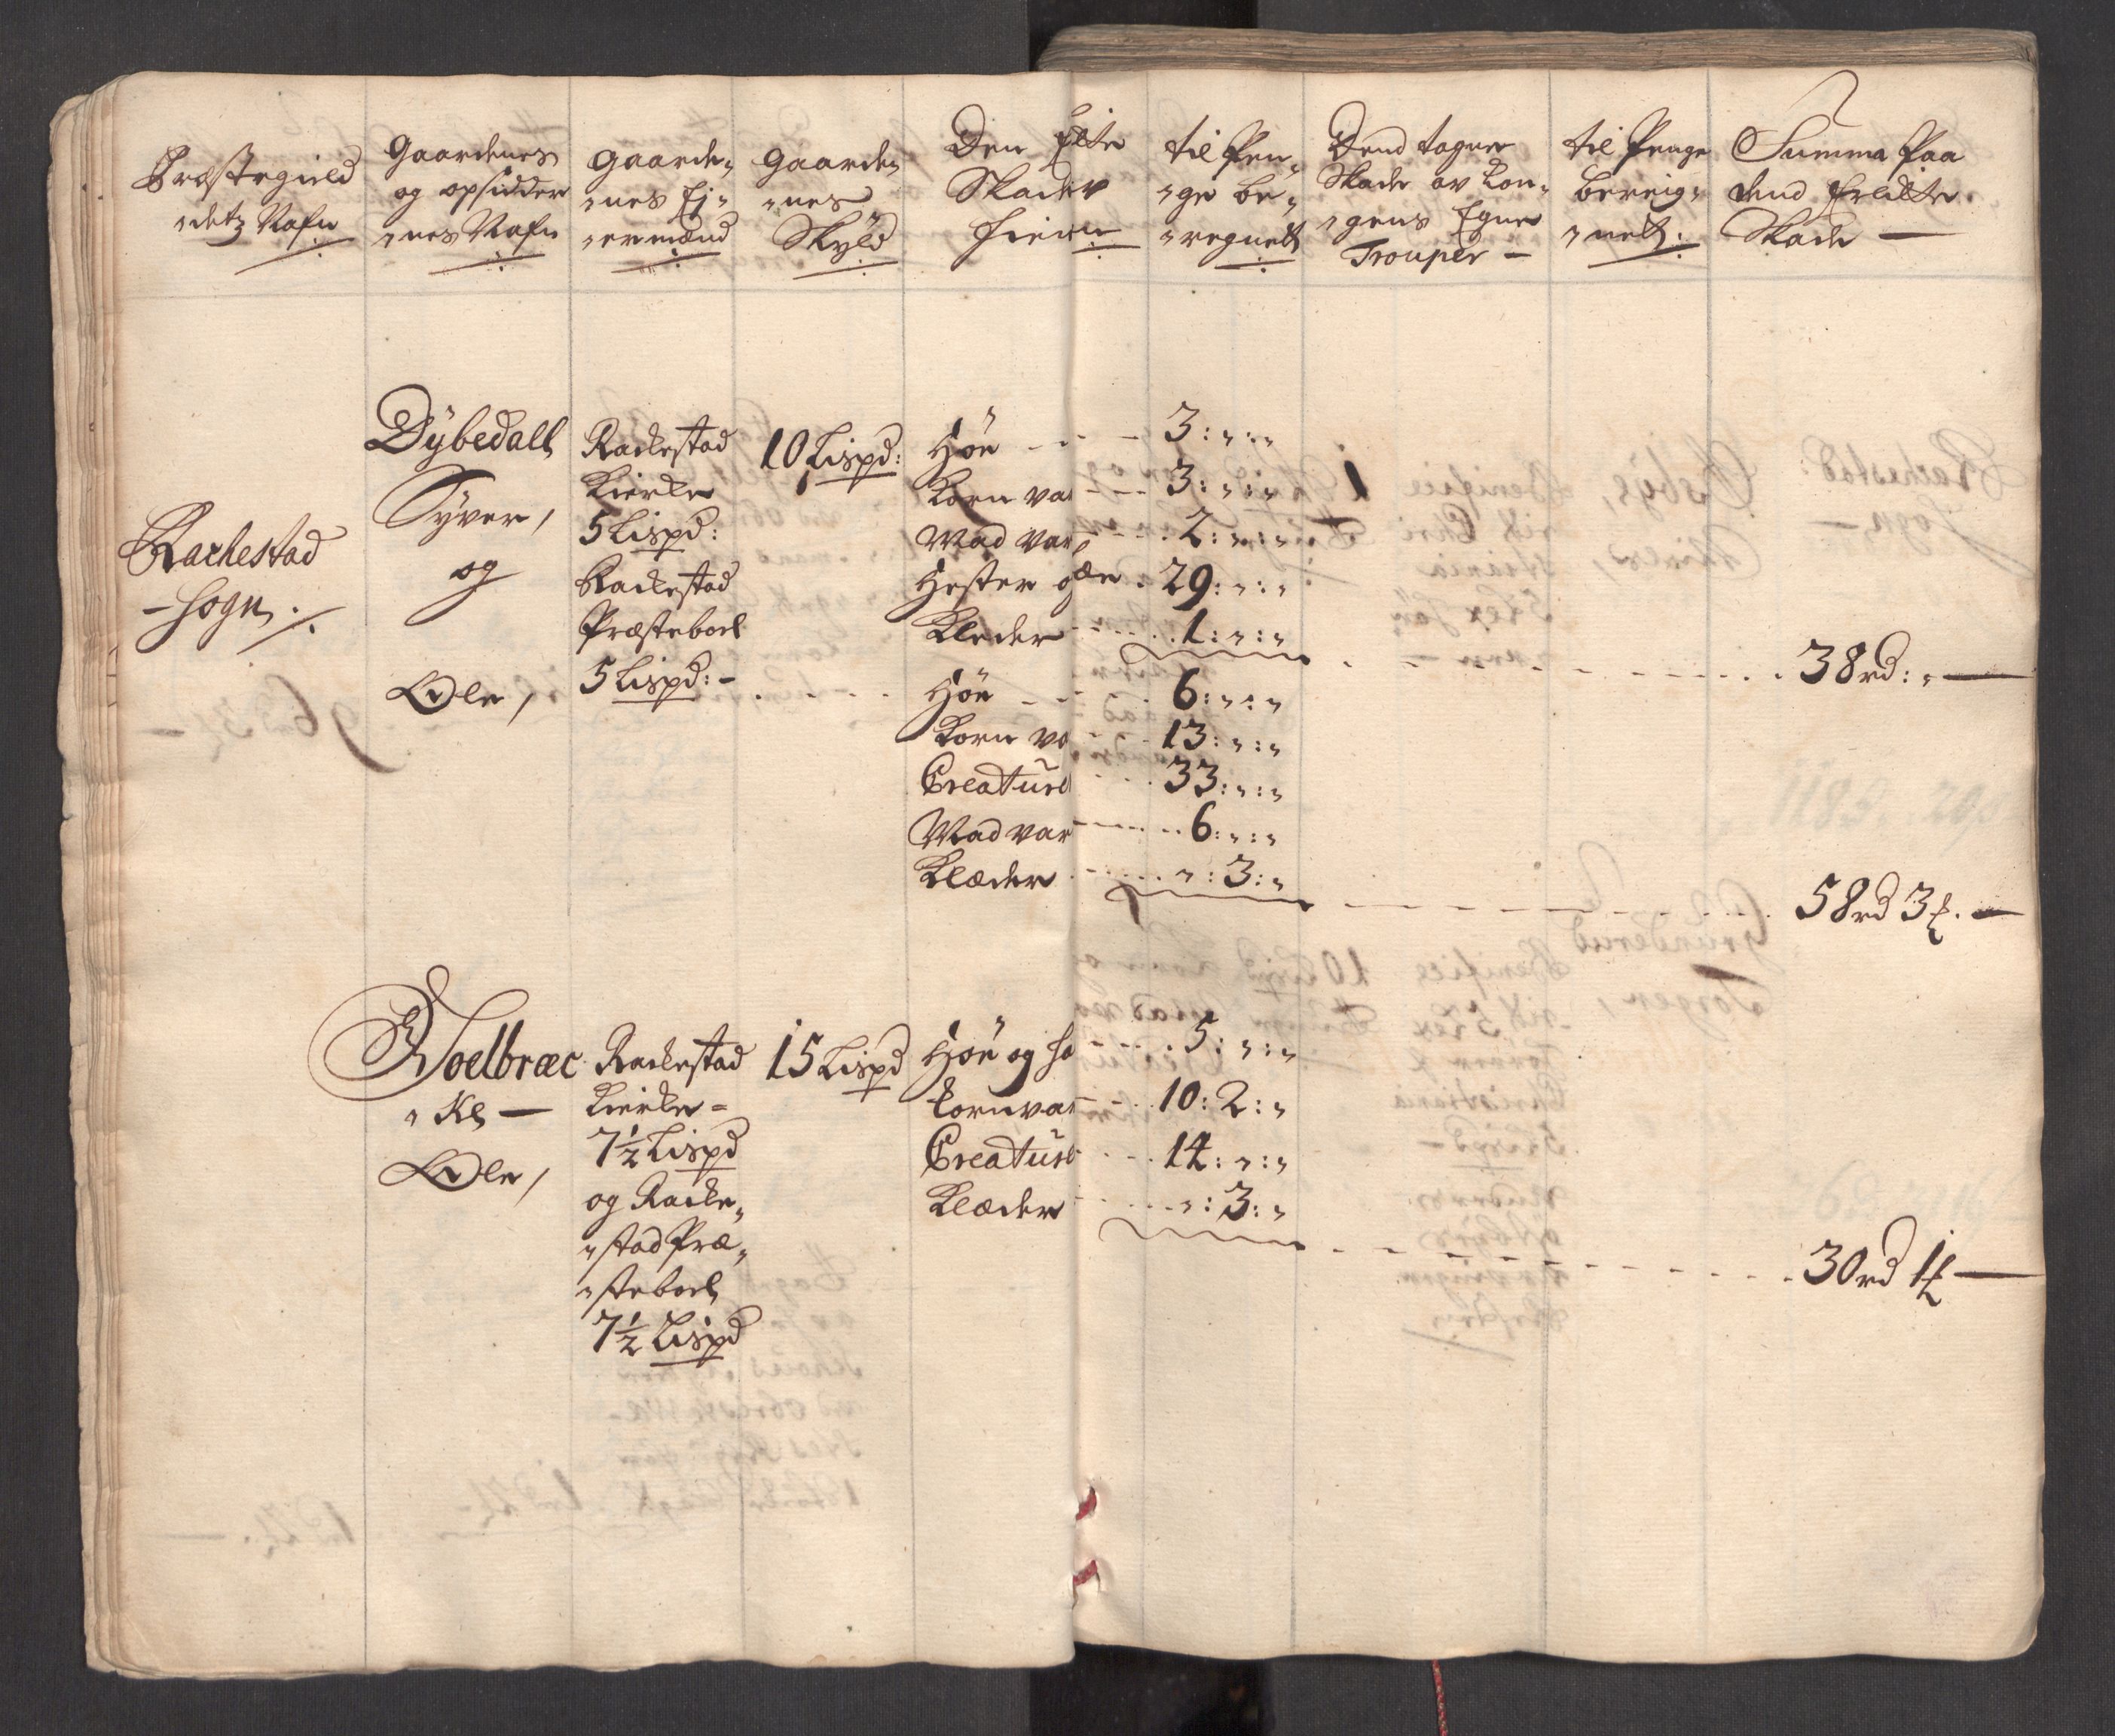 Præstegield
"detz Nafn
Gaardenes
og opsidder
"nes Nafn
Gaarde"
"nes Ej"
"ermænd
Gaarde"
"nes
Skyld
Den
Skade
til Pen"
"ge be"
"regnett
Dend tagne
Skade av Kon"
"gens Egne
Trouper —
til Penge
bereig"
"nett:
Summa Paa
dend
Skade —
Rachestad
- Sogn
Dÿbedall
Syver,
og
Ole,
Rackestad
Kierke
5 Lispd:
Rackestad
Præsteboel
5 Lispd: -
10 Lispd:
Høe - - - 3: " : "
Korn va - - 3: " : "
Mad var - - 2: " : "
Hester 29: " : "
Kleder - - 1: " : "
38 rd: " —
Høe - - - 6: " : "
Korn va - - 13: " : "
Creature - - 33: " : "
Mad var - - 6: " : "
Klæder - - " : 3: "
58 rd 3 ß. —
Hoelbræc
" Ke —
Ole,
Rackestad
Kierke =
7½ Lispd
og Racke"
"stad Præ"
"steboel
7½ Lispd
15 Lispd
Høe og ha - - 5: " : "
Kornvar - - 10: 2: "
Creature - - 14: " : "
Klæder - - " : 3: "
30 rd 1 ß —